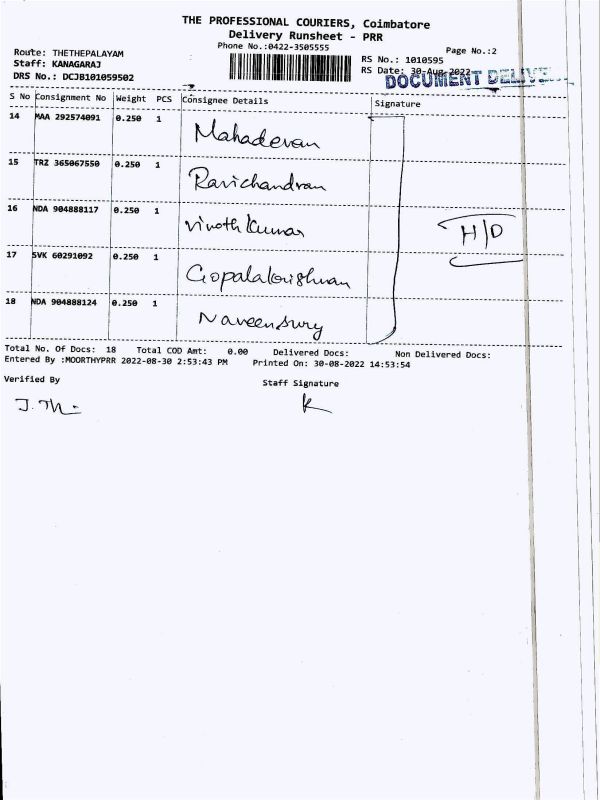 THE PROFESSIONAL COURIERS, Coimbatore
Delivery Runsheet - PRR
Phone No.:0422-3505555
Page No.:2
Route: THETHEPALAYAM
Staff: KANAGARAJ
DRS No.: DCJB101059502
RS No.: 1010595
RS Date: 30-Aug-2022
DOCUMENT DELIVE
S No Consignment No Weight PCS Consignee Details Signature
14 MAA 292574091 0.250 1 Mahadevan
15 TRZ 365067550 0.250 1 Ravichandran
16 NDA 904888117 0.250 1 Vinoth Kumar
H/D
17 SVK 60291092 0.250 1 Gopalakrishnan
18 NDA 904888124 0.250 1 Naveensury
Total No. Of Docs: 18 Total COD Amt: 0.00 Delivered Docs: Non Delivered Docs:
Entered By :MOORTHYPRR 2022-08-30 2:53:43 PM Printed On: 30-08-2022 14:53:54
Verified By Staff Signature
K